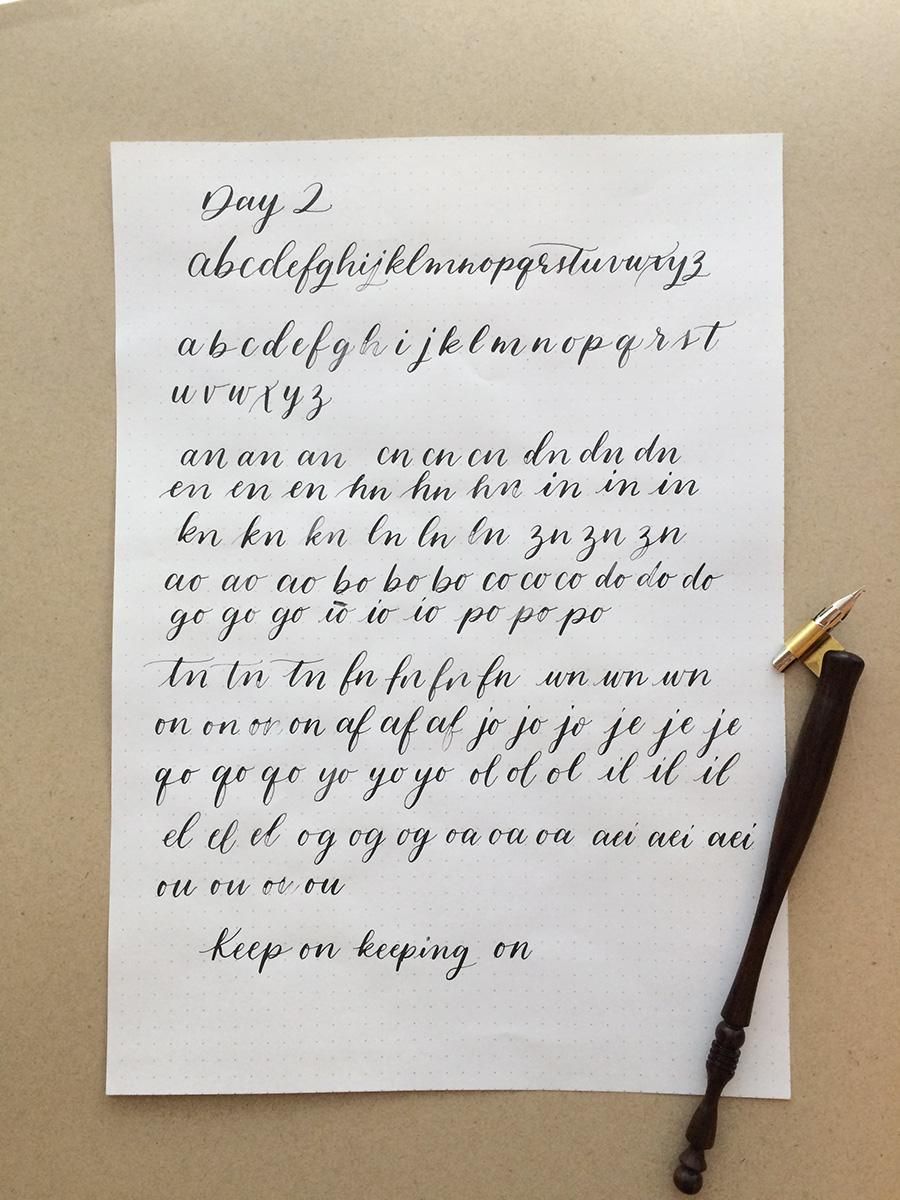 Day 2
abcdefghijklmnopqrstuvwxyz
a b c d e f g h i j k l m n o p q r s t
u v w x y z
an an an cn cn cn dn dn dn
en en en hn hn hn in in in
kn kn kn ln ln ln zn zn zn
ao ao ao bo bo bo co co co do do do
go go go io io io po po po
tn tn tn fn fn fn fn wn wn wn
on on on on af af af jo jo jo je je je
qo qo qo yo yo yo ol ol ol il il il
el el el og og og oa oa oa aei aei aei
ou ou ou ou
Keep on keeping on